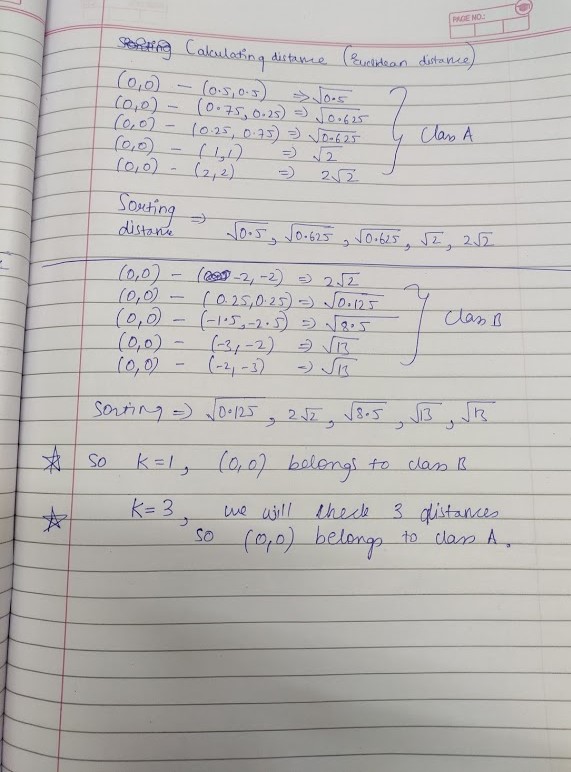 PAGE NO.:
Calculating distance (Euclidean distance)
(0,0) – (0.5,0.5) ⇒ √0.5
(0,0) – (0.75, 0.25) ⇒ √0.625
(0,0) – (0.25, 0.75) ⇒ √0.625
(0,0) – (1,1) ⇒ √2
(0,0) – (2,2) ⇒ 2√2
Class A
Sorting distance ⇒ √0.5, √0.625, √0.625, √2, 2√2
(0,0) – (-2, -2) ⇒ 2√2
(0,0) – (0.25,0.25) ⇒ √0.125
(0,0) – (-1.5, -2.5) ⇒ √8.5
(0,0) – (-3, -2) ⇒ √13
(0,0) – (-2, -3) ⇒ √13
Class B
Sorting ⇒ √0.125, 2√2, √8.5, √13, √13
☆ so K=1, (0,0) belongs to class B
☆ K=3, we will check 3 distances
so (0,0) belongs to class A.